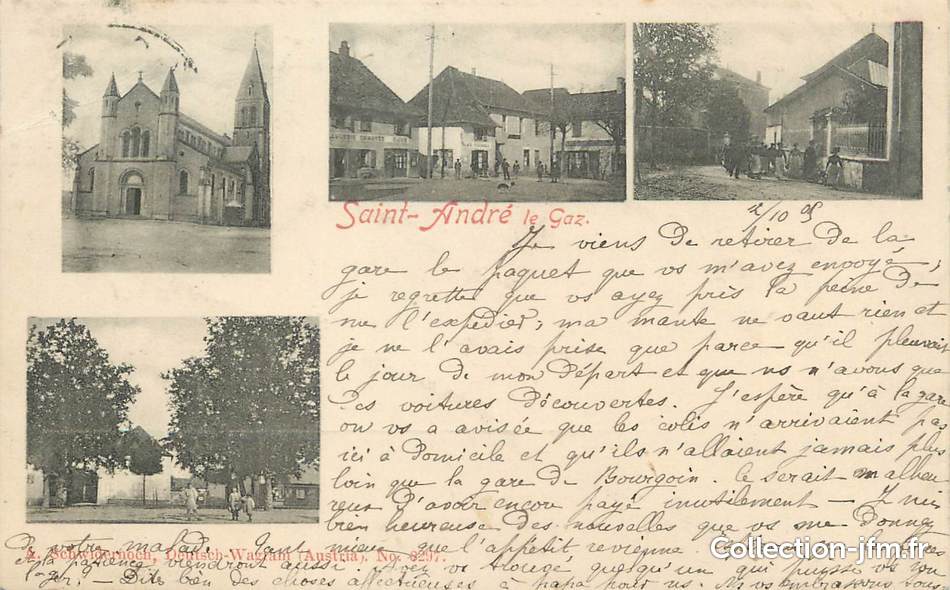 Saint-André le Gaz.
2/10 05
Je viens de retirer de la
gare le paquet que vs m'avez envoyé;
je regrette que vs ayez pris la peine de
me l'expédier; ma mante ne vaut rien et
je ne l'avais prise que parce qu'il pleuvait
le jour de mon départ et que ns n'avons que
des voitures découvertes. J'espère qu'à la gare
on vs a avisée que les colis n'arrivaient pas
ici à domicile et qu'ils n'allaient jamais plus
loin que la gare de Bourgoin. Ce serait malheu
reux d'avoir encore payé inutilement —
bien heureuse des nouvelles que vs me donnez
De votre malade que l'appétit revienne
la patience viendront aussi. Avez vs trouvé quelqu'un qui puisse vs
— Dites bien des choses affectueuses à papa pour ns. Ns vs embrassons tous
A. Schwidernoch, Deutsch-Wagram (Austria), No. 8297.
Collection-jfm.fr